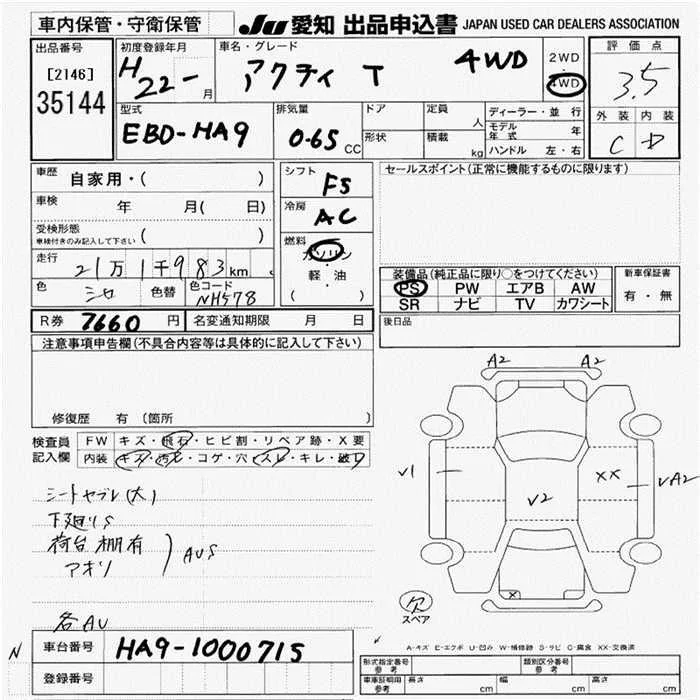 車内保管・守衛保管 JU 愛知 出品申込書 JAPAN USED CAR DEALERS ASSOCIATION
出品番号
[2146]
35144
初度登録年月
H 22 - 月
車名・グレード
アクティ T 4WD
2WD
・
4WD
評価点
3.5
外装 内装
C D
型式
EBD-HA9
排気量
0.65 CC
ドア
形状
定員 人
積載 kg
ディーラー・並行
モデル年式 年
ハンドル 左・右
車歴 自家用・( )
車検 年 月( 日)
受検形態
車検付きのみ記入して下さい ( )
走行 21万1千983km
色 シロ 色替 色コード NH578
シフト F5
冷房 AC
燃料
ガソリン
・
軽・油
( )
セールスポイント(正常に機能するものに限ります)
装備品(純正品に限り○をつけてください)
PS PW エアB AW
SR ナビ TV カワシート
新車保証書
有・無
後日品
R券 7660 円 名変通知期限 月 日
注意事項申告欄(不具合内容等は具体的に記入して下さい)
修復歴 有 (箇所 )
検査員
記入欄
FW キズ・飛石・ヒビ割・リペア跡・X要
内装 キズ・汚レ・コゲ・穴・スレ・キレ・破レ
シートヤブレ(大)
下廻りS
荷台 棚有
アオリ
AUS
各AU
A2 A2
V1
V2
XX
VA2
X
欠
スペア
N
車台番号 HA9-1000715
登録番号
A-キズ E-エクボ U-凹み W-補修跡 S-サビ C-腐食 XX-交換済
形式指定番号
参考
類別区分番号
参考
車庫証明用
参考
長さ cm 幅 cm 高さ cm